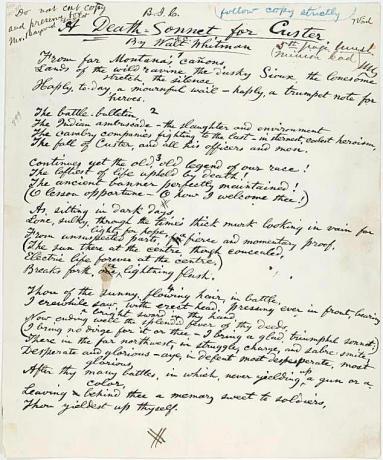 Do not cut copy
and preserve
B. I. C.
follow copy strictly
A Death-Sonnet for Custer
By Walt Whitman
5th page
From far Montana's cañons,
Lands of the wild ravine, the dusky Sioux, the lonesome
stretch, the silence,
Haply, to-day, a mournful wail—haply, a trumpet note for
heroes.
2
The battle-bulletin,
The Indian ambuscade—the slaughter and environment
The cavalry companies fighting to the last—in sternest, coolest heroism,
The fall of Custer, and all his officers and men.
3
Continues yet the old, old legend of our race!
The loftiest of life upheld by death!
The ancient banner perfectly maintained!
(O lesson opportune—O how I welcome thee!)
As, sitting in dark days,
Lone, sulky, through the time's thick murk looking in vain for
light, for hope,
From unsuspected parts, a fierce and momentary proof,
(The sun there at the centre though concealed,
Electric life forever at the centre,)
Breaks forth, a lightning flash.
4
Thou of the sunny, flowing hair, in battle,
I erewhile saw, with erect head, pressing ever in front, bearing
a bright sword in thy hand,
Now ending well the splendid fever of thy deeds,
(I bring no dirge for it or thee—I bring a glad triumphal sonnet;)
There in the far northwest, in struggle, charge, and sabre-smite,
Desperate and glorious—aye, in defeat most desperate, most
glorious,
After thy many battles, in which, never yielding up a gun or a
color,
Leaving behind thee a memory sweet to soldiers,
Thou yieldest up thyself.